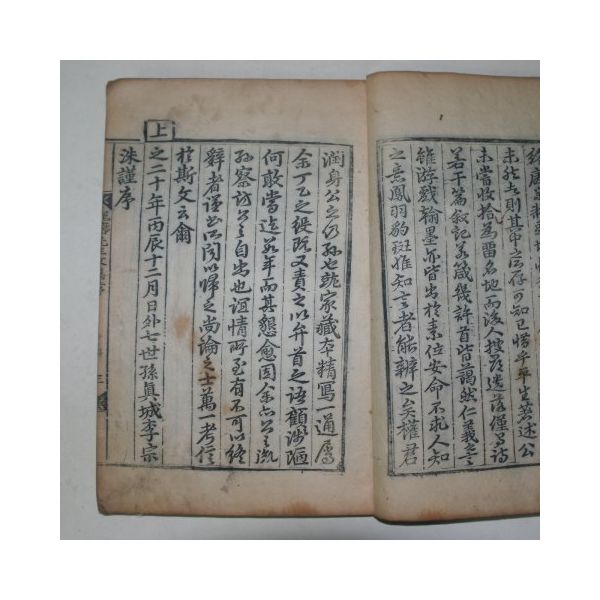 未能忘則其中之所存可知已惜乎平生著述公
未嘗收拾為留名地而後人搜於遺落僅得詩
若干篇敘記若箴幾許首皆藹然仁義之言
雖游戲翰墨亦皆出於素位安命不求人知
之意鳳羽豹斑惟知言者能辨之矣權君
潤身公之仍孫也就家藏本精寫一通屬
余丁乙之役旣又責之以弁首之語顧淺陋
何敢當迄若年而其懇愈固余亦公之
孫察訪公自出也誼情所至有不可以終
辭者謹書所聞以歸之尚論之士萬一考信
於斯文云爾
上
之二十年丙辰十二月日外七世孫眞城李宗
洙謹序